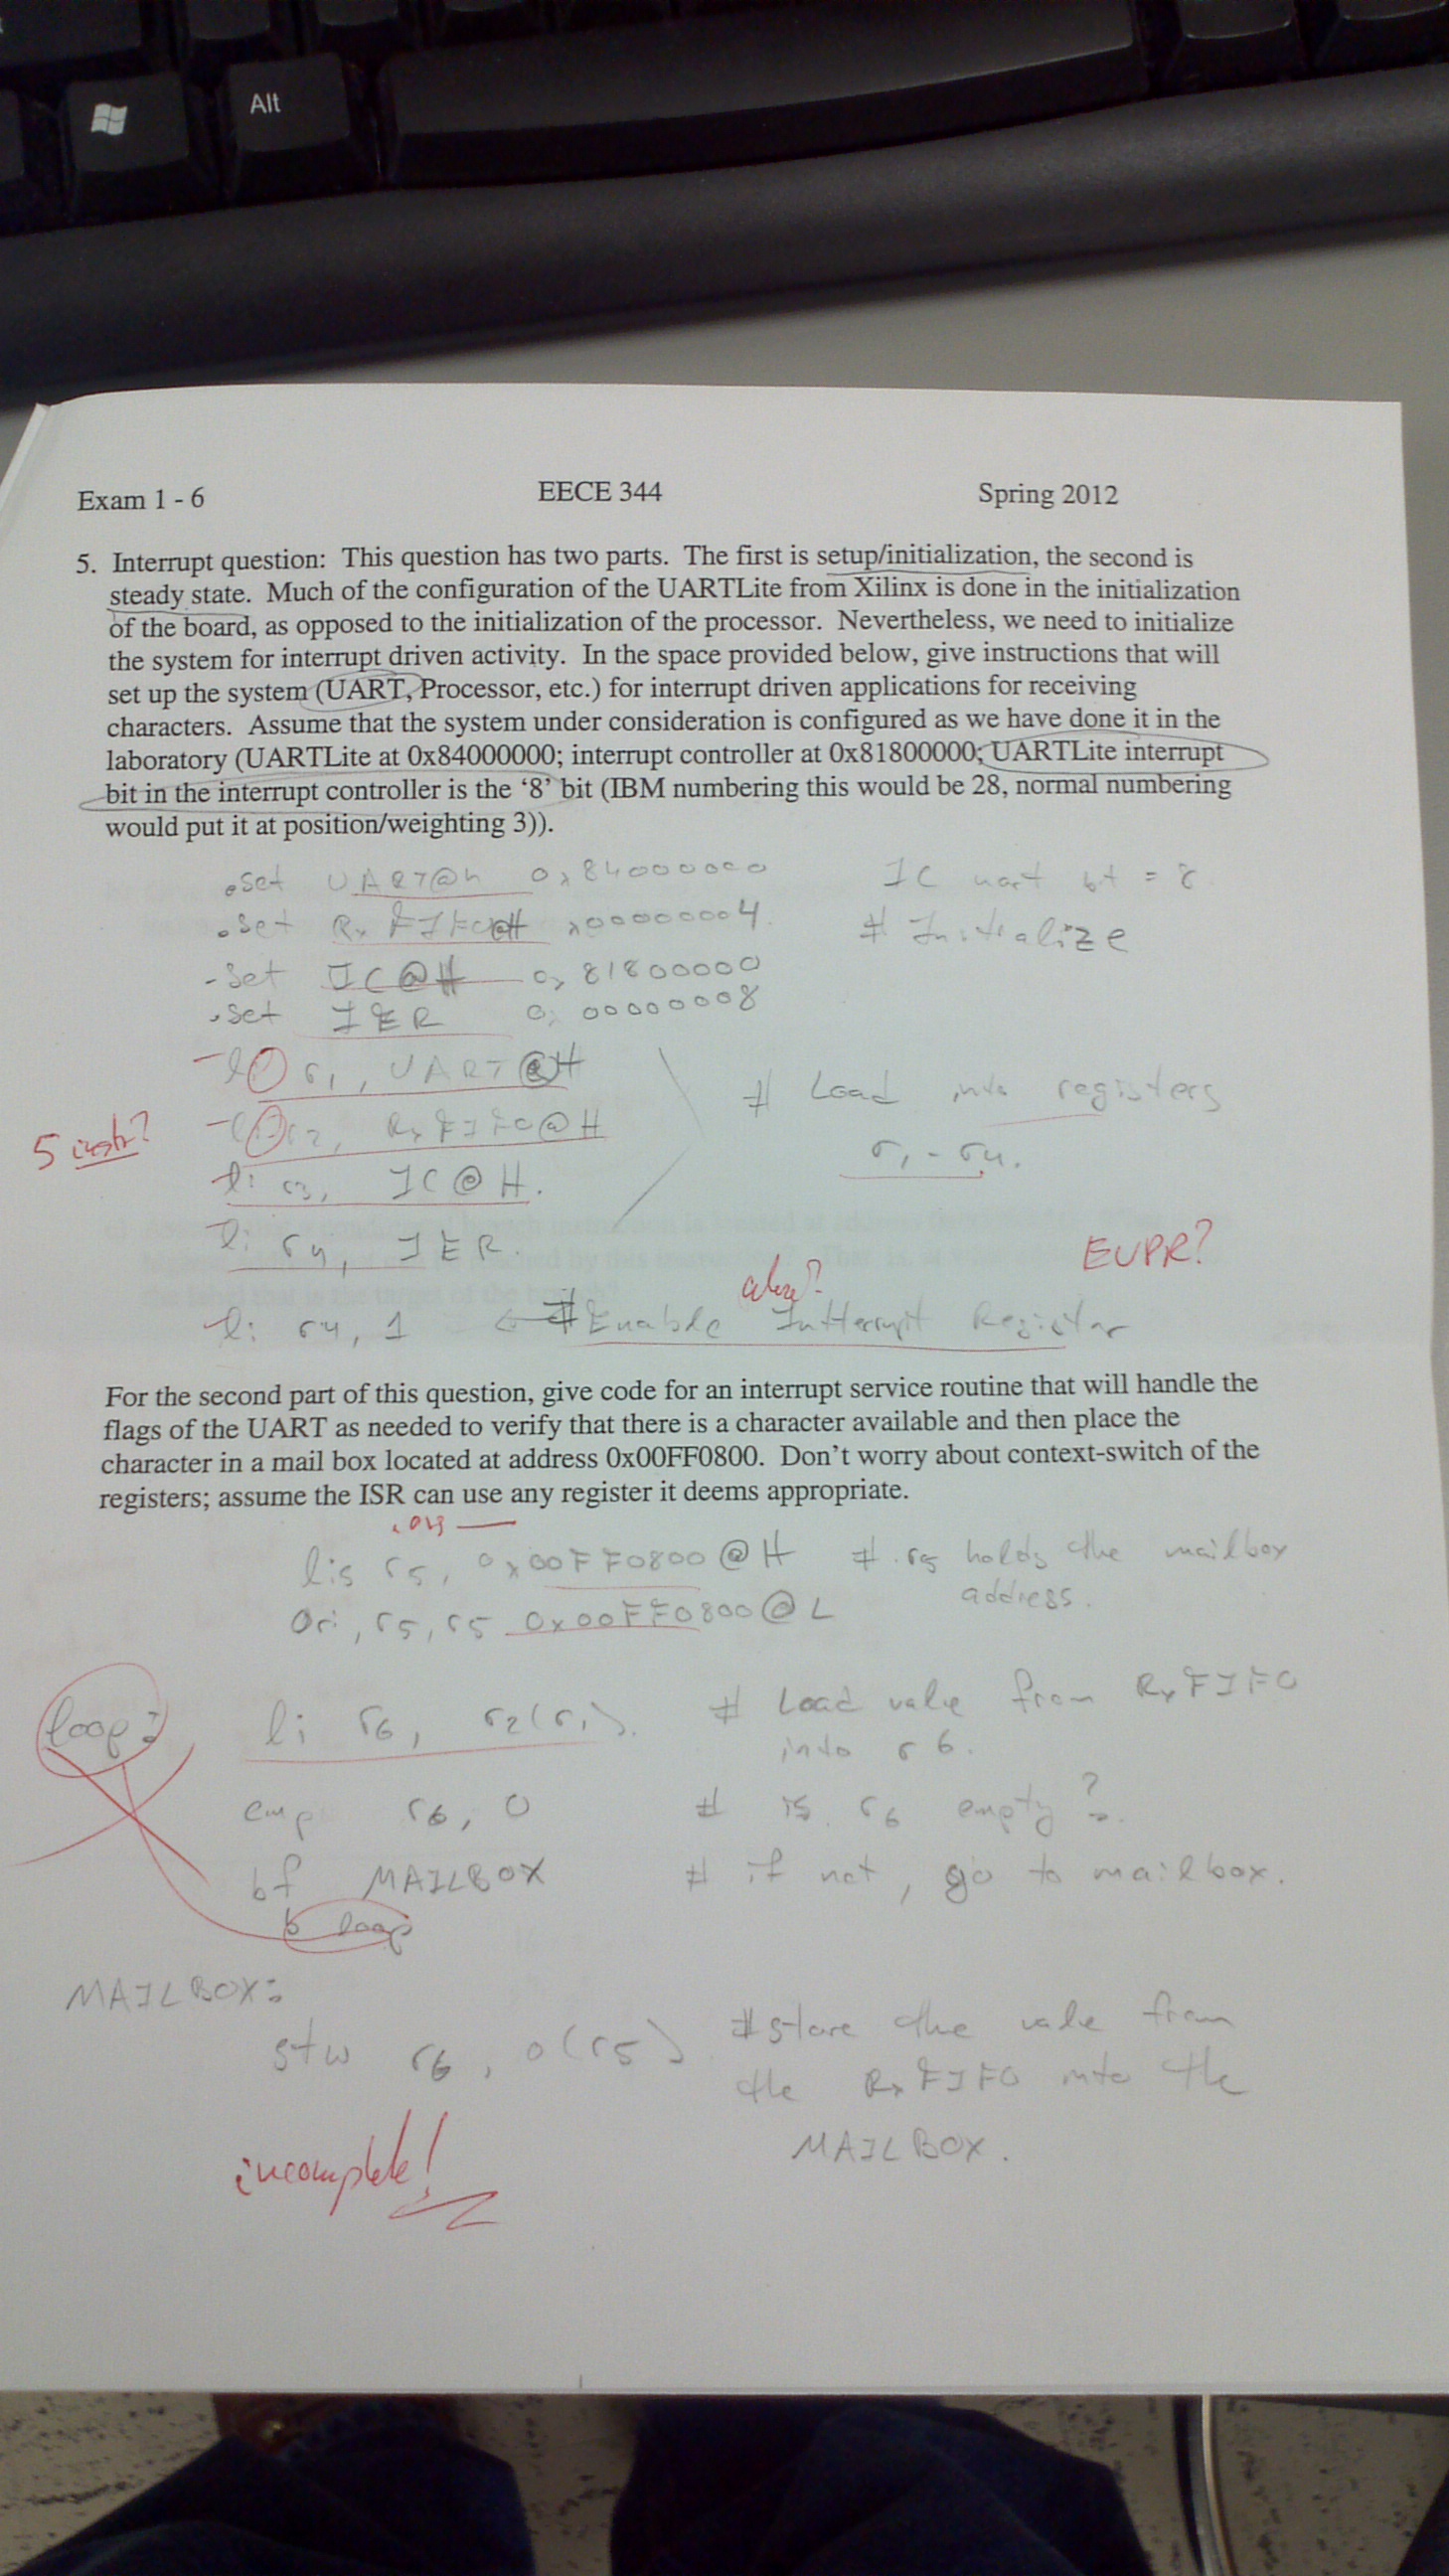 Alt
Exam 1 - 6 EECE 344 Spring 2012
5. Interrupt question: This question has two parts. The first is setup/initialization, the second is
steady state. Much of the configuration of the UARTLite from Xilinx is done in the initialization
of the board, as opposed to the initialization of the processor. Nevertheless, we need to initialize
the system for interrupt driven activity. In the space provided below, give instructions that will
set up the system (UART, Processor, etc.) for interrupt driven applications for receiving
characters. Assume that the system under consideration is configured as we have done it in the
laboratory (UARTLite at 0x84000000; interrupt controller at 0x81800000; UARTLite interrupt
bit in the interrupt controller is the ‘8’ bit (IBM numbering this would be 28, normal numbering
would put it at position/weighting 3)).
.set UART@h 0x84000000 IC uart bit = 8
.set RxFIFO@H x00000004 # Initialize
.set IC@H 0x81800000
.set IER 0x00000008
li r1, UART@H
# Load into registers
5 instr? li r2, RxFIFO@H
r1 - r4.
li r3, IC@H.
li r4, IER. EVPR?
where?
li r4, 1 ← # Enable Intterrupt Register
For the second part of this question, give code for an interrupt service routine that will handle the
flags of the UART as needed to verify that there is a character available and then place the
character in a mail box located at address 0x00FF0800. Don’t worry about context-switch of the
registers; assume the ISR can use any register it deems appropriate.
.org
lis r5, 0x00FF0800@H # r5 holds the mailbox
address.
Ori, r5, r5 0x00FF0800@L
loop: li r6, r2(r1). # Load value from RxFIFO
into r6.
cmp r6, 0 # is r6 empty?
bf MAILBOX # if not, go to mailbox.
b loop
MAILBOX:
stw r6, 0(r5) # store the value from
the RxFIFO into the
MAILBOX.
incomplete!